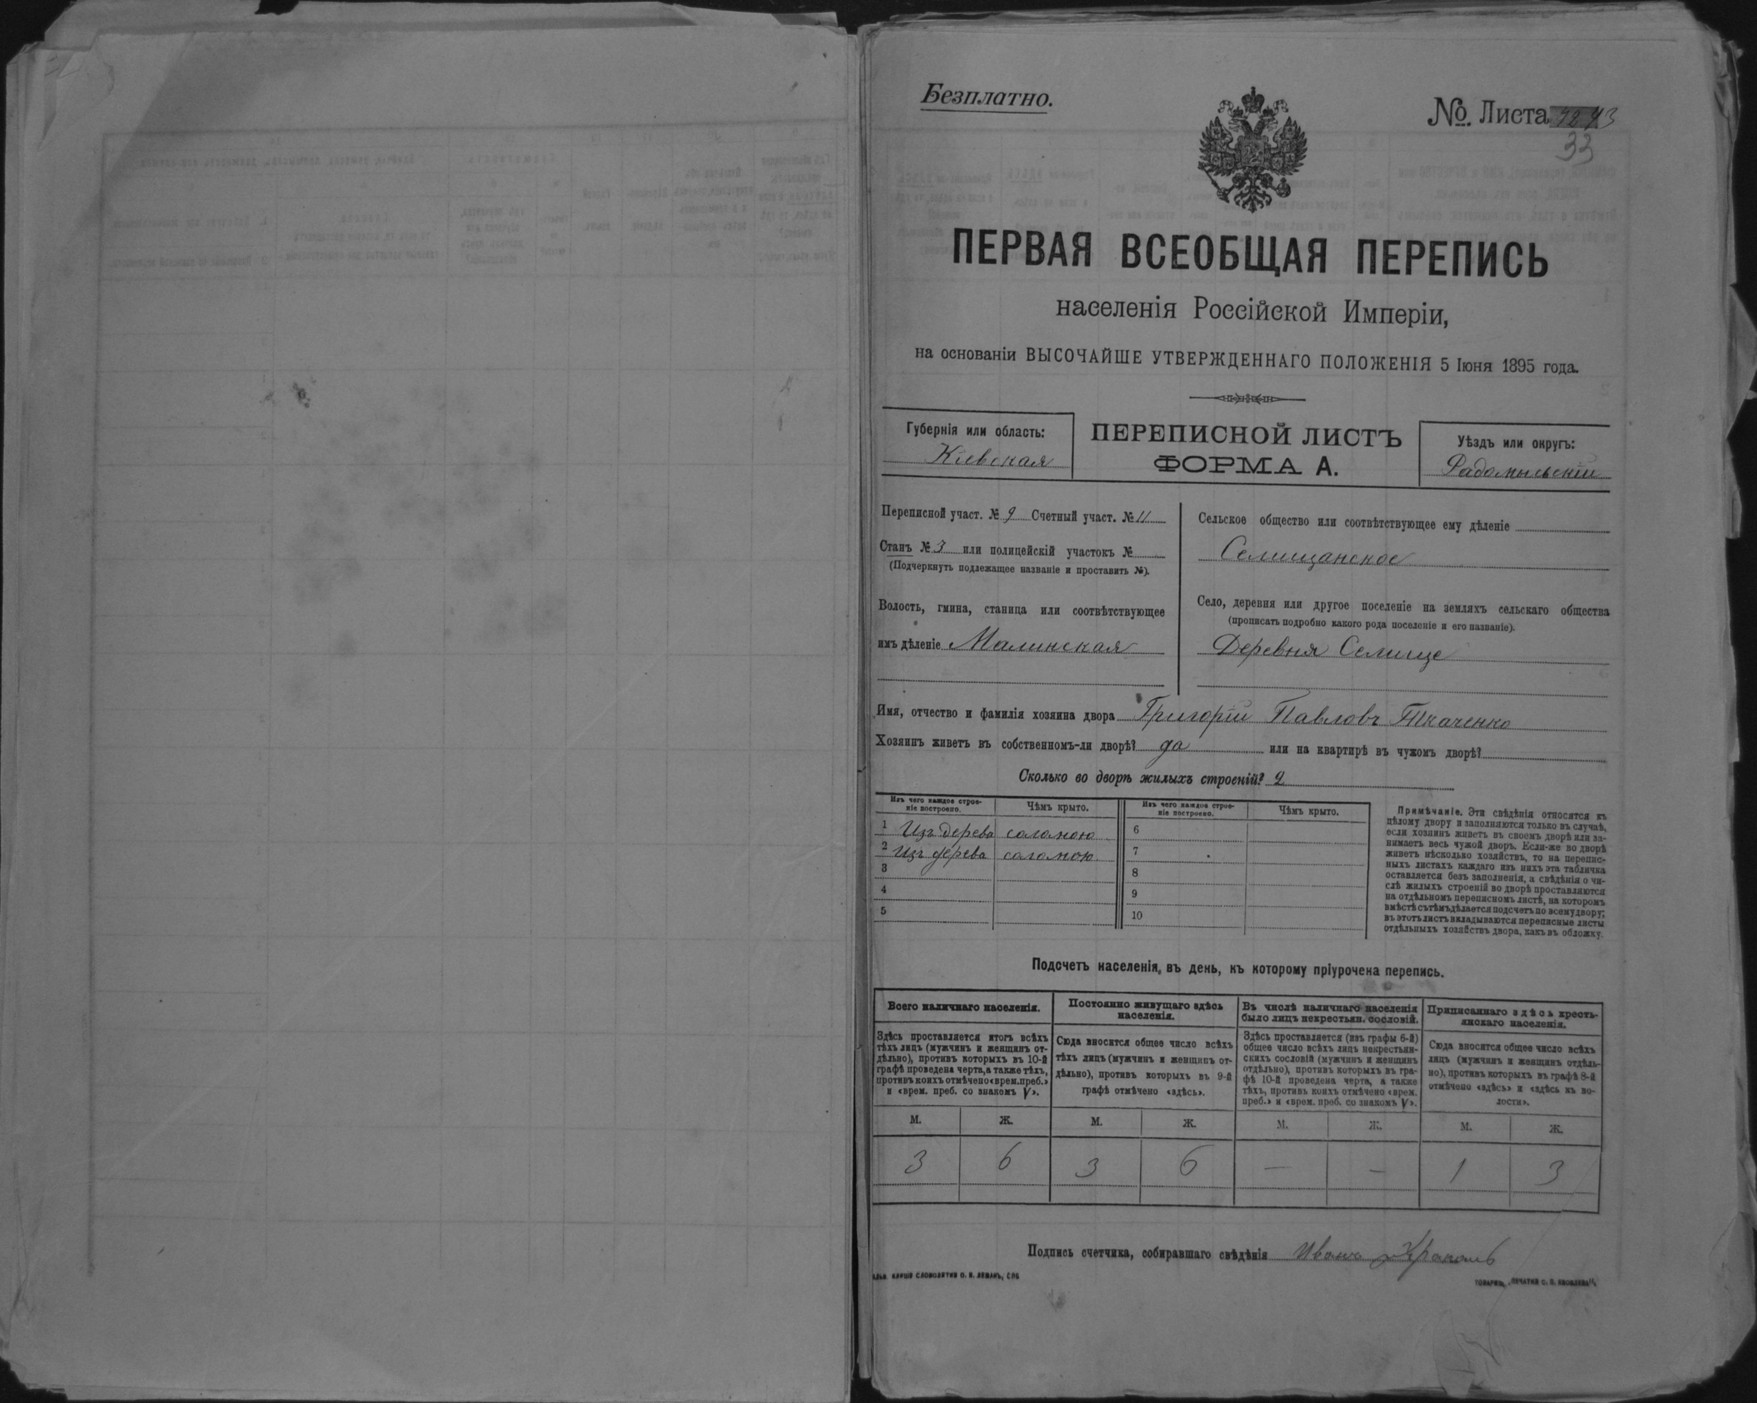 Безплатно.
№. Листа
33
ПЕРВАЯ ВСЕОБЩАЯ ПЕРЕПИСЬ
населенія Россійской Имперіи,
на основаніи ВЫСОЧАЙШЕ УТВЕРЖДЕННАГО ПОЛОЖЕНІЯ 5 Іюня 1895 года.
Губернія или область:
Кіевская
ПЕРЕПИСНОЙ ЛИСТЪ
ФОРМА А.
Уѣздъ или округъ:
Радомысльскій
Переписной участ. № 9 Счетный участ. № 11
Станъ № 3 или полицейскій участокъ №
(Подчеркнуть подлежащее названіе и проставить №).
Волость, гмина, станица или соотвѣтствующее
имъ дѣленіе Малинская
Сельское общество или соотвѣтствующее ему дѣленіе
Селищанское
Село, деревня или другое поселеніе на земляхъ сельскаго общества
(прописать подробно какого рода поселеніе и его названіе).
Деревня Селище
Имя, отчество и фамилія хозяина двора Григорій Павловъ Ткаченко
Хозяинъ живетъ въ собственномъ-ли дворѣ? да или на квартирѣ въ чужомъ дворѣ?
Сколько во дворѣ жилыхъ строеній? 2
Изъ чего каждое строе-
ніе построено.
Чѣмъ крыто.
1 Изъ дерева соломою
2 Изъ дерева соломою
3
4
5
Изъ чего каждое строе-
ніе построено.
Чѣмъ крыто.
6
7
8
9
10
Примѣчаніе. Эти свѣдѣнія относятся къ
цѣлому двору и заполняются только въ случаѣ,
если хозяинъ живетъ въ своемъ дворѣ или за-
нимаетъ весь чужой дворъ. Если-же во дворѣ
живетъ нѣсколько хозяйствъ, то на перепис-
ныхъ листахъ каждаго изъ нихъ эта табличка
оставляется безъ заполненія, а свѣдѣнія о чи-
слѣ жилыхъ строеній во дворѣ проставляются
на отдѣльномъ переписномъ листѣ, на которомъ
вмѣстѣ съ тѣмъ дѣлается подсчетъ по всему двору;
въ этотъ листъ вкладываются переписные листы
отдѣльныхъ хозяйствъ двора, какъ въ обложку.
Подсчетъ населенія, въ день, къ которому пріурочена перепись.
Всего наличнаго населенія.
Здѣсь проставляется итогъ всѣхъ
тѣхъ лицъ (мужчинъ и женщинъ от-
дѣльно), противъ которыхъ въ 10-й
графѣ проведена черта, а также тѣхъ,
противъ коихъ отмѣчено «врем. преб.»
и «врем. преб. со знакомъ V».
М. Ж.
3 6
Постоянно живущаго здѣсь
населенія.
Сюда вносится общее число всѣхъ
тѣхъ лицъ (мужчинъ и женщинъ от-
дѣльно), противъ которыхъ въ 9-й
графѣ отмѣчено «здѣсь».
М. Ж.
3 6
Въ числѣ наличнаго населенія
было лицъ некрестьян. сословій.
Здѣсь проставляется (изъ графы 6-й)
общее число всѣхъ лицъ некрестьян-
скихъ сословій (мужчинъ и женщинъ
отдѣльно), противъ которыхъ въ гра-
фѣ 10-й проведена черта, а также
тѣхъ, противъ коихъ отмѣчено «врем.
преб.» и «врем. преб. со знакомъ V».
М. Ж.
— —
Приписаннаго здѣсь кресть-
янскаго населенія.
Сюда вносится общее число всѣхъ
лицъ (мужчинъ и женщинъ отдѣль-
но), противъ которыхъ въ графѣ 8-й
отмѣчено «здѣсь» и «здѣсь къ во-
лости».
М. Ж.
1 3
Подпись счетчика, собиравшаго свѣдѣнія Иванъ